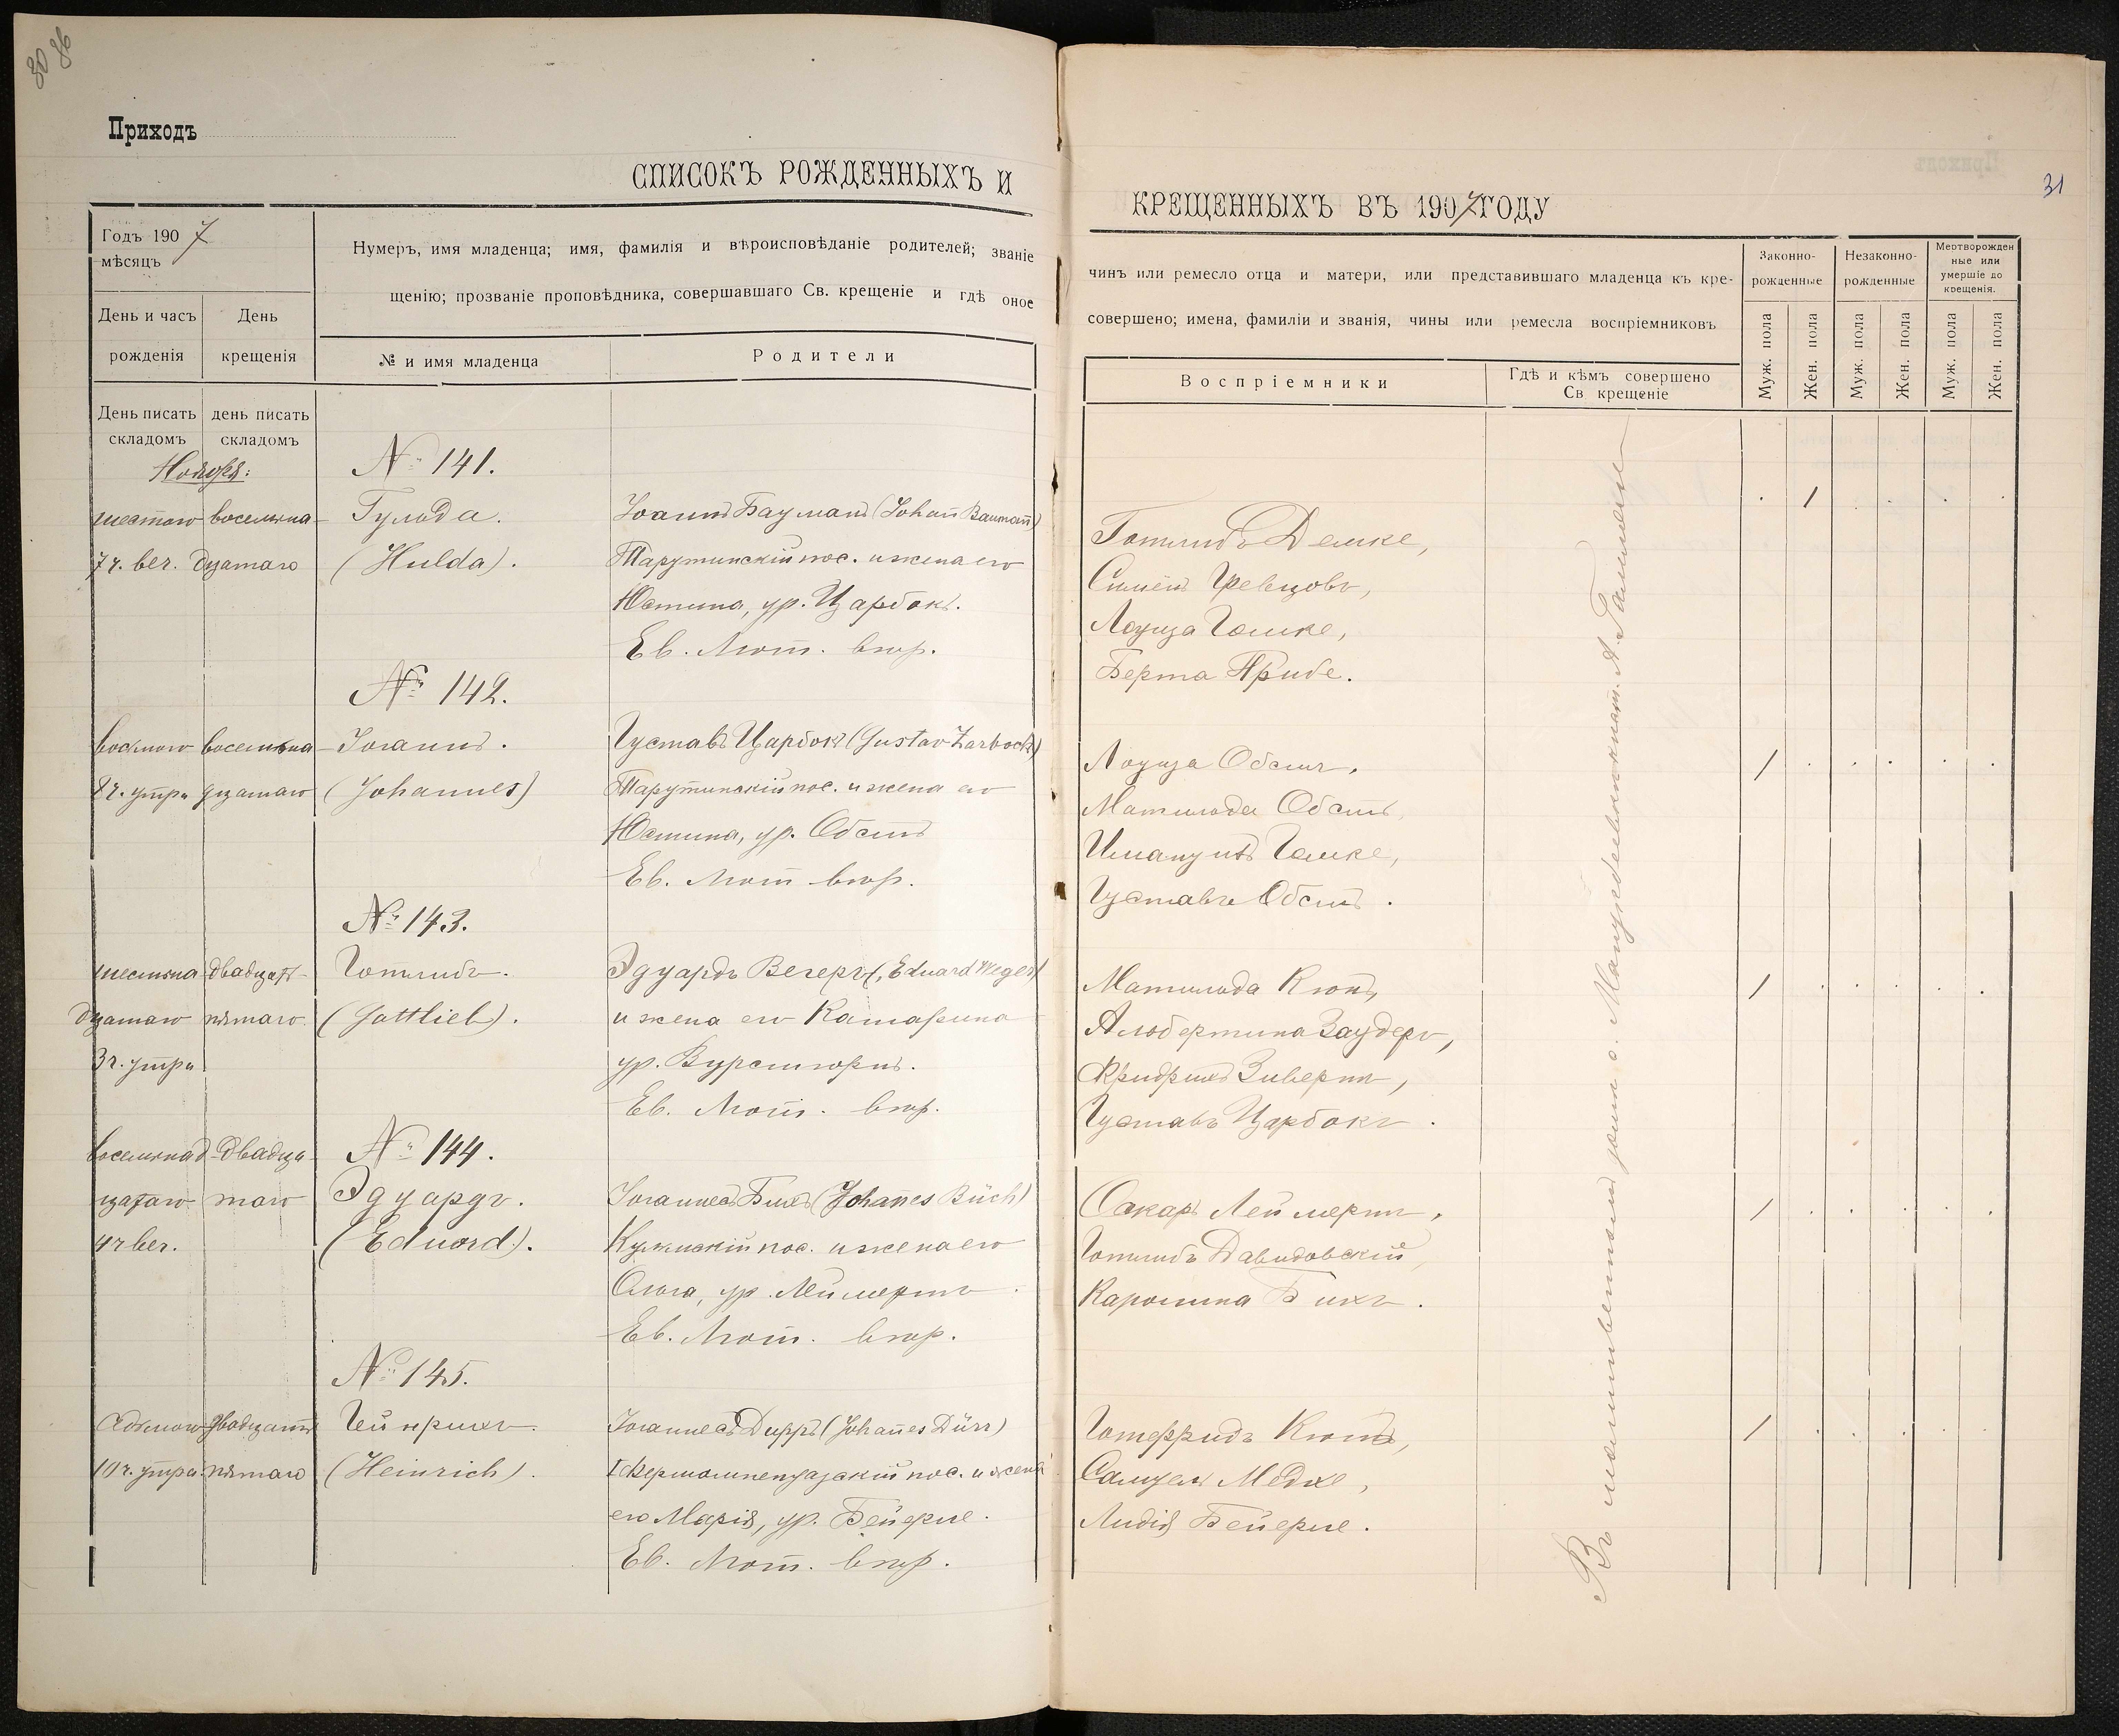 30 86
Приходъ
СПИСОКЪ РОЖДЕННЫХЪ И
Годъ 1907
мѣсяцъ
Нумеръ, имя младенца; имя, фамилія и вѣроисповѣданіе родителей; званіе
щенію; прозваніе проповѣдника, совершавшаго Св. крещеніе и гдѣ оное
День и часъ рожденія
День крещенія
№ и имя младенца
Родители
День писать складомъ
день писать складомъ
Ноября:
№ 141.
шестого восемна- Гульда. Іоаннъ Бауманъ (Johañ Baumañ)
7 ч. веч. дцатаго (Hulda). Тарутинскій пос. и жена его
Юстина, ур. Царбокъ.
Ев. Лют. вѣр.
№ 142.
восьмого восемьна- Іоганнъ. Густавъ Царбокъ (Gustav Zarbock)
8 ч. утра дцатаго (Johannes) Тарутинскій пос. и жена его
Юстина, ур. Обстъ
Ев. Лют вѣр.
№ 143.
шестьна- двадцать- Готлибъ. Эдуардъ Вегеръ (Eduard Weger)
дцатаго пятаго (Gottlieb). и жена его Катарина
3 ч. утра ур. Вурстгорнъ.
Ев. Лют. вѣр.
№ 144.
восемнад- двадца-
цатаго таго Эдуардъ. Іоганнесъ Бихъ (Johañes Büch)
4 ч веч. (Eduard). Кульмскій пос. и жена его
Ольга, ур. Леймертъ.
Ев. Лют. вѣр.
№ 145.
седьмого двадцать Гейнрихъ. Іоганнесъ Дирръ (Johañes Dürr)
10 ч. утра пятаго (Heinrich). I Фершампенуазскій пос. и жена
его Марія, ур. Бейерле.
Ев. Лют. вѣр.
31
КРЕЩЕННЫХЪ ВЪ 1907 ГОДУ
чинъ или ремесло отца и матери, или представившаго младенца къ кре-
совершено; имена, фамиліи и званія, чины или ремесла воспріемниковъ
Воспріемники
Гдѣ и кѣмъ совершено
Св крещеніе
Законно-
рожденные
Незаконно-
рожденные
Мертворожден
ные или
умершіе до
крещенія.
Муж. пола
Жен. пола
Муж. пола
Жен. пола
Муж. пола
Жен. пола
Готлибъ Демке,
Симонъ Гревцовъ,
Лоуиза Гамке,
Берта Прибе.
Лоуиза Обстъ,
Матильда Обстъ,
Имануилъ Гамке,
Густавъ Обстъ.
Матильда Кюнъ,
Альбертина Заудеръ,
Фридрихъ Зивертъ,
Густавъ Царбокъ.
Оскаръ Леймертъ,
Готлибъ Давидовскій,
Каролина Бихъ.
Готфридъ Кютъ,
Самуелъ Медке,
Лидія Бейерле.
Въ молитвенномъ домѣ с.